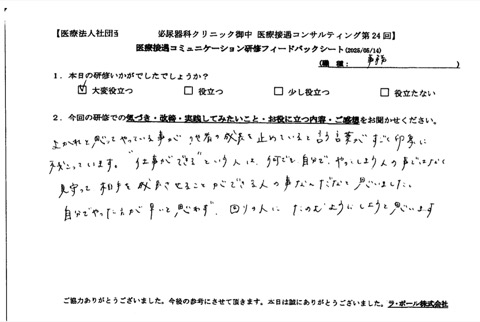 【医療法人社団圭 泌尿器科クリニック御中 医療接遇コンサルティング第24回】
医療接遇コミュニケーション研修フィードバックシート(2025/05/14)
(職種: 事務 )
1.本日の研修いかがでしたでしょうか?
☑大変役立つ □役立つ □少し役立つ □役立たない
2.今回の研修での気づき・改善・実践してみたいこと・お役に立つ内容・ご感想をお聞かせください。
よかれと思ってやっている事が他者の成長を止めていると言う言葉がすごく印象に
残っています。"仕事ができる"という人は、何でも自分でやってしまう人の事ではなく
見守って相手を成長させることができる人の事なんだなと思いました。
自分でやった方が早いと思わず、回りの人にたのむようにしようと思います
ご協力ありがとうございました。今後の参考にさせて頂きます。本日は誠にありがとうございました。ラ・ポール株式会社